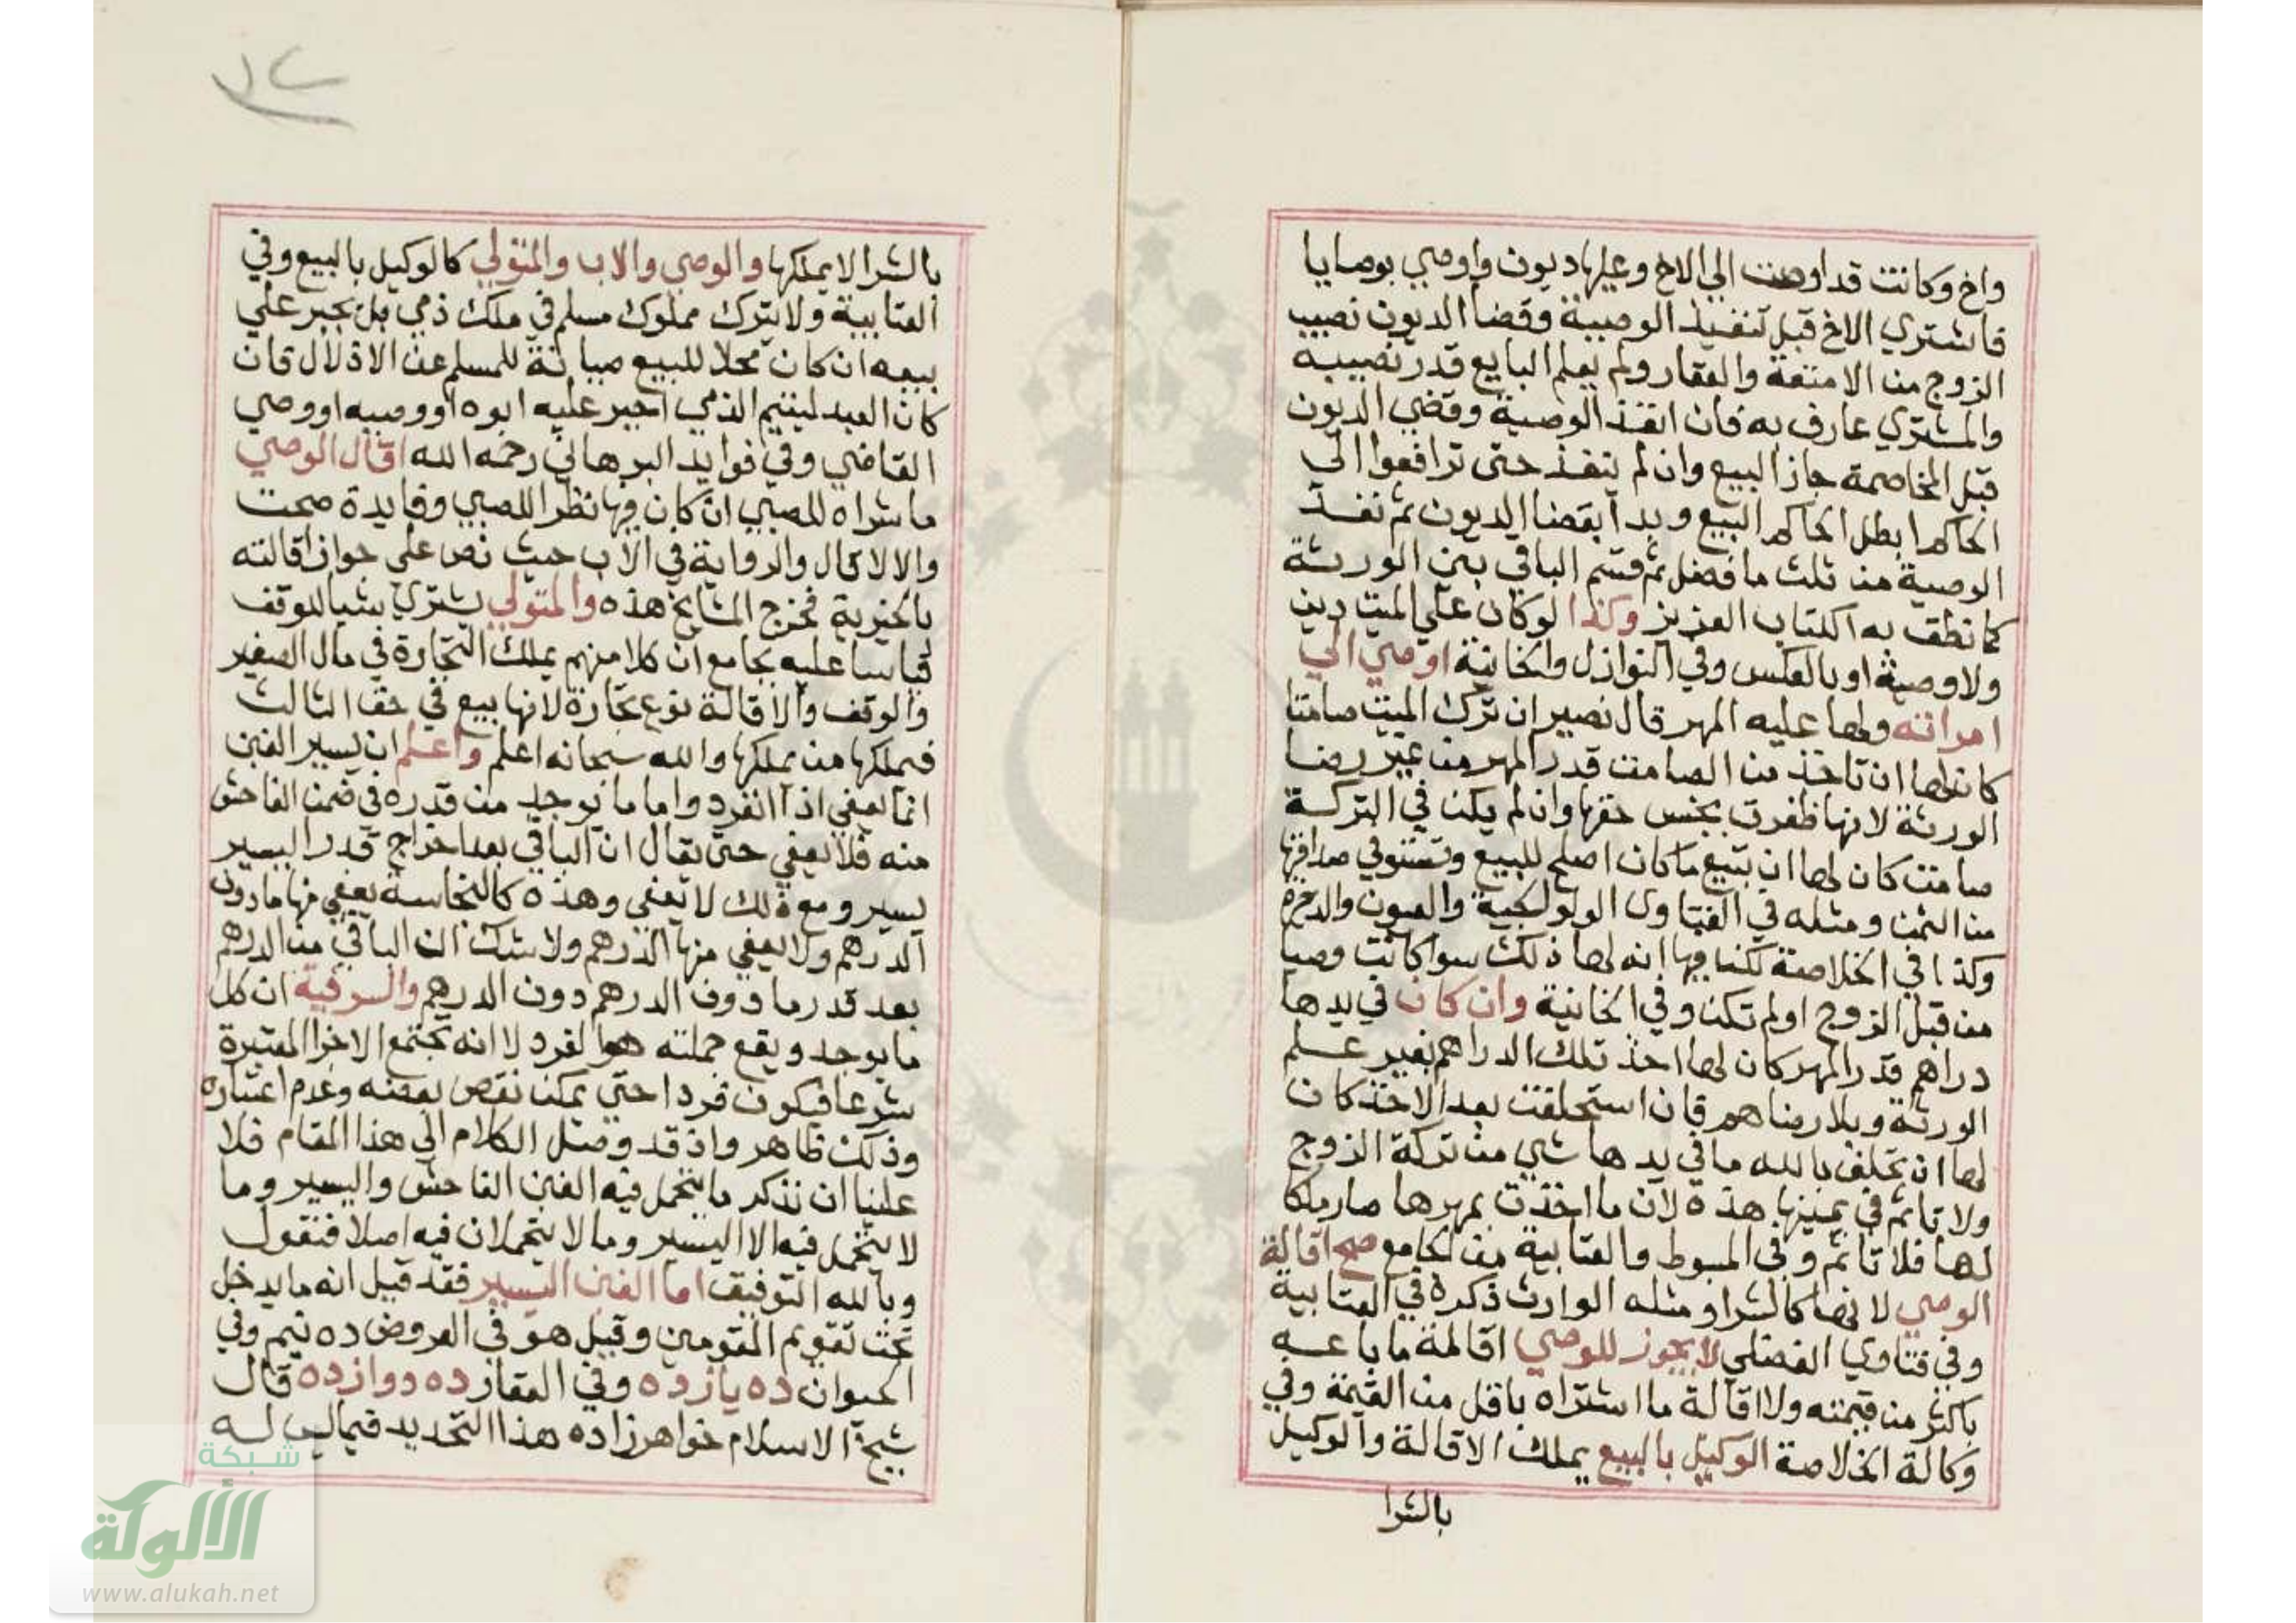 واخ وكانت قد اوصت الي الاخ وعليها ديون واوصي بوصايا
فاشتري الاخ قبل تنفيذ الوصية وقضا الديون نصيب
الزوج من الامتعة والعقار ولم يعلم البايع قدر نصيبه
والمشتري عارف به فان انفذ الوصية وقضي الديون
قبل المخاصمة جاز البيع وان لم ينفذ حتي ترافعوا الي
الحاكم ابطل الحاكم البيع وبدا بقضا الديون ثم نفذ
الوصية من ثلث ما فضل ثم قسم الباقي بين الورثة
كما نطق به الكتاب العزيز وكذا لو كان علي الميت دين
ولا وصية او بالعكس وفي النوازل والخانية اوصي الي
امراته ولها عليه المهر قال نصير ان ترك الميت صامتا
كان لها ان تاخذ من الصامت قدر المهر من غير رضا
الورثة لانها ظفرت بجنس حقها وان لم يكن في التركة
صامت كان لها ان تبيع ما كان اصلح للبيع وتستوفي صداقها
من الثمن ومثله في الفتاوي الولوالجية والعيون والذخيرة
وكذا في الخلاصة لكن فيها انه لها ذلك سوا كانت وصيا
من قبل الزوج او لم تكن وفي الخانية وان كان في يدها
دراهم قدر المهر كان لها اخذ تلك الدراهم بغير علم
الورثة وبلا رضاهم فان استحلفت بعد الاخذ كان
لها ان تحلف بالله ما في يدها شي من تركة الزوج
ولا تاثم في يمينها هذه لان ما اخذت بمهرها صار ملكا
لها فلا تاثم وفي المبسوط والعتابية من الجامع صح اقالة
الوصي لانها كالشرا ومثله الوارث ذكره في العتابية
وفي فتاوي الفضلي لا يجوز للوصي اقالة ما باعه
باكثر من قيمته ولا اقالة ما اشتراه باقل من القيمة وفي
وكالة الخلاصة الوكيل بالبيع يملك الاقالة والوكيل
بالشرا
بالشرا لا يملكها والوصي والاب والمتولي كالوكيل بالبيع وفي
العتابية ولا يترك مملوك مسلم في ملك ذمي بل يجبر علي
بيعه ان كان محلا للبيع صيانة للمسلم عن الاذلال فان
كان العبد ليتيم الذمي اجبر عليه ابوه او وصيه او وصي
القاضي وفي فوايد البرهاني رحمه الله اقال الوصي
ما شراه للصبي ان كان فيها نظر للصبي وفايدة صحت
والا لا قال والرواية في الاب حيث نص علي جواز اقالته
بالخيرية فخرج المشايخ هذه والمتولي يشتري شيا للوقف
قياسا عليه بجامع ان كلا منهم يملك التجارة في مال الصغير
والوقف والاقالة نوع تجارة لانها بيع في حق الثالث
فيملكها من يملكها والله سبحانه اعلم واعلم ان يسير الغبن
انما يعفي اذا انفرد واما ما يوجد من قدره في ضمن الفاحش
منه فلا يعفي حتي يقال ان الباقي بعد اخراج قدر اليسير
يسير ومع ذلك لا يعفي وهذه كالنجاسة يعفي منها ما دون
الدرهم ولا يعفي منها الدرهم ولا شك ان الباقي من الدرهم
بعد قدر ما دون الدرهم دون الدرهم والسر فيه ان كل
ما يوجد ويقع جملته هو الفرد لا انه تجتمع الاجزا المعتبرة
شرعا فيكون فردا حتي يمكن نقص بعضه وعدم اعتباره
وذلك ظاهر واذ قد وصل الكلام الي هذا المقام فلا
علينا ان نذكر ما يتحمل فيه الغبن الفاحش واليسير وما
لا يتحمل فيه الا اليسير وما لا يتحملان فيه اصلا فنقول
وبالله التوفيق اما الغبن اليسير فقد قيل انه ما يدخل
تحت تقويم المقومين وقيل هو في العروض ده نيم وفي
الحيوان ده يازده وفي العقار ده دوازده قال
شيخ الاسلام خواهر زاده هذا التحديد فيما ليس له
شبكة
الألوكة
www.alukah.net